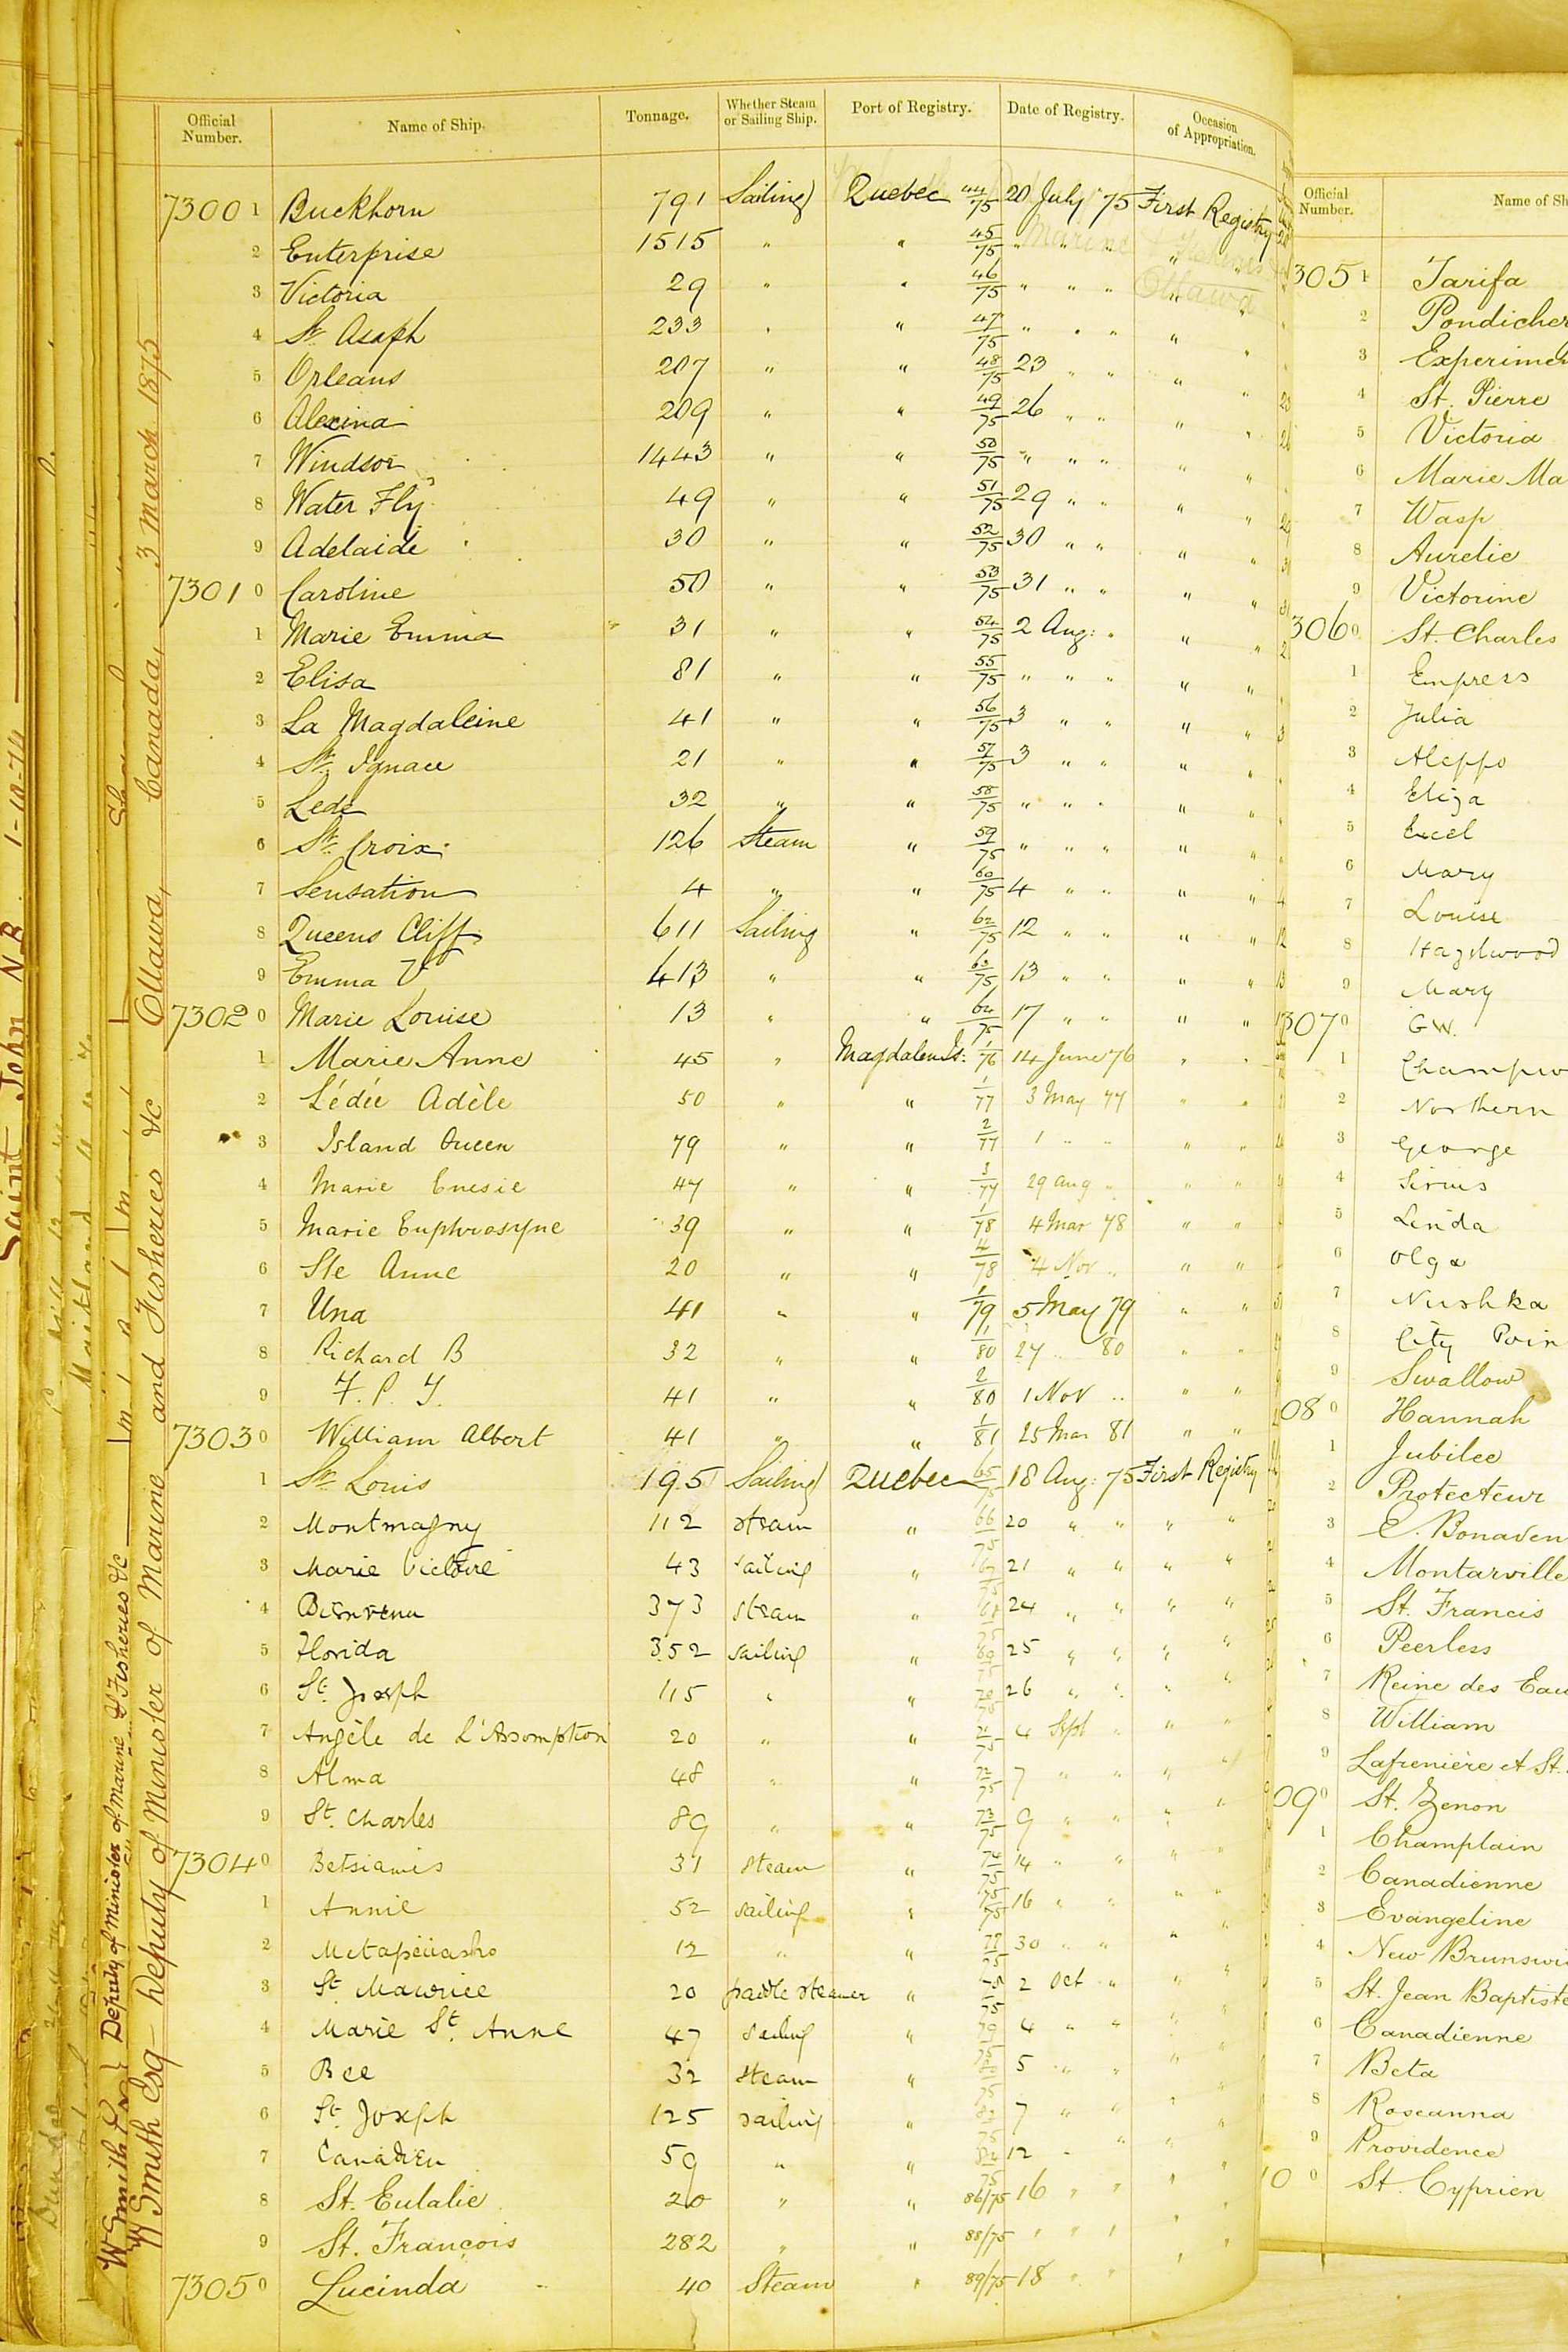 Official Number. Name of Ship. Tonnage. Whether Steam or Sailing Ship. Port of Registry. Date of Registry. Occasion of Appropriation.
73001 Buckhorn 791 Sailing Quebec 44/75 20 July 75 First Registry
2 Enterprise 1515 " " 45/75 " " " " "
3 Victoria 29 " " 46/75 " " " " "
4 St. Asaph 233 " " 47/75 " " " " "
5 Orleans 207 " " 48/75 23 " " " "
6 Alexina 209 " " 49/75 26 " " " "
7 Windsor 1443 " " 50/75 " " " " "
8 Water Fly 49 " " 51/75 29 " " " "
9 Adelaide 30 " " 52/75 30 " " " "
73010 Caroline 50 " " 53/75 31 " " " "
1 Marie Emma 31 " " 54/75 2 Aug: " " "
2 Elisa 81 " " 55/75 " " " " "
3 La Magdaleine 41 " " 56/75 3 " " " "
4 St. Ignace 21 " " 57/75 3 " " " "
5 Leda 32 " " 58/75 " " " " "
6 St. Croix 126 Steam " 59/75 " " " " "
7 Sensation 4 " " 60/75 4 " " " "
8 Queens Cliff 611 Sailing " 62/75 12 " " " "
9 Emma V 413 " " 63/75 13 " " " "
73020 Marie Louise 13 " " 64/75 17 " " " "
1 Marie Anne 45 " Magdalen Is: 1/76 14 June 76 " "
2 Lédée Adèle 50 " " 1/77 3 May 77 " "
3 Island Queen 79 " " 2/77 1 " " " "
4 Marie Enesie 47 " " 3/77 29 Aug " " "
5 Marie Euphrosyne 39 " " 1/78 4 Mar 78 " "
6 Ste Anne 20 " " 4/78 4 Nov " " "
7 Una 41 " " 1/79 5 May 79 " "
8 Richard B 32 " " 1/80 27 " 80 " "
9 F. P. T. 41 " " 2/80 1 Nov " " "
73030 William Albert 41 " " 1/81 25 Mar 81 " "
1 St. Louis 195 Sailing Quebec 65/75 18 Aug: 75 First Registry
2 Montmagny 112 steam " 66/75 20 " " " "
3 Marie Victoire 43 sailing " 67/75 21 " " " "
4 Bienvenu 373 steam " 24 " " " "
5 Florida 352 sailing " 69/75 25 " " " "
6 St. Joseph 115 " " 70/75 26 " " " "
7 Angèle de L'Assomption 20 " " 75 4 Sept " " "
8 Alma 48 " " 72/75 7 " " " "
9 St. Charles 89 " " 73/75 9 " " " "
73040 Betsiamis 31 steam " 74/75 14 " " " "
1 Annie 52 sailing " 75/75 16 " " " "
2 12 " " 30 " " " "
3 St. Maurice 20 paddle steamer " 75 2 Oct " " "
4 Marie St. Anne 47 sailing " 79/75 4 " " " "
5 Bee 32 steam " 75 5 " " " "
6 St. Joseph 125 sailing " 75 7 " " " "
7 Canadien 59 " " 84/75 12 " " " "
8 St. Eulalie 20 " " 86/75 16 " " " "
9 St. François 282 " " 88/75 " " " " "
73050 Lucinda 40 Steam " 89/75 18 " "
Official Number. Name of Sh
3051 Tarifa
2 Pondicher
3 Experimen
4 St. Pierre
5 Victoria
6 Marie Ma
7 Wasp
8 Aurelie
9 Victorine
3060 St. Charles
1 Empress
2 Julia
3 Aleppo
4 Eliza
5 Excel
6 Mary
7 Louise
8 Hazelwood
9 Mary
3070 G W.
1 Champio
2 Northern
3 George
4 Sirius
5 Linda
6 Olga
7 Nushka
8 City Poin
9 Swallow
080 Hannah
1 Jubilee
2 Protecteur
3 E. Bonaven
4 Montarville
5 St. Francis
6 Peerless
7 Reine des Eau
8 William
9 Lafrenière et St.
090 St. Zenon
1 Champlain
2 Canadienne
3 Evangeline
4 New Brunswi
5 St. Jean Baptiste
6 Canadienne
7 Beta
8 Roseanna
9 Providence
100 St. Cyprien
W Smith Esq - Deputy of Minister of Marine and Fisheries &c Ottawa, Canada, 3 March 1875
W Smith Esq Deputy of Minister of Marine & Fisheries &c
Saint John N B 1-10-74